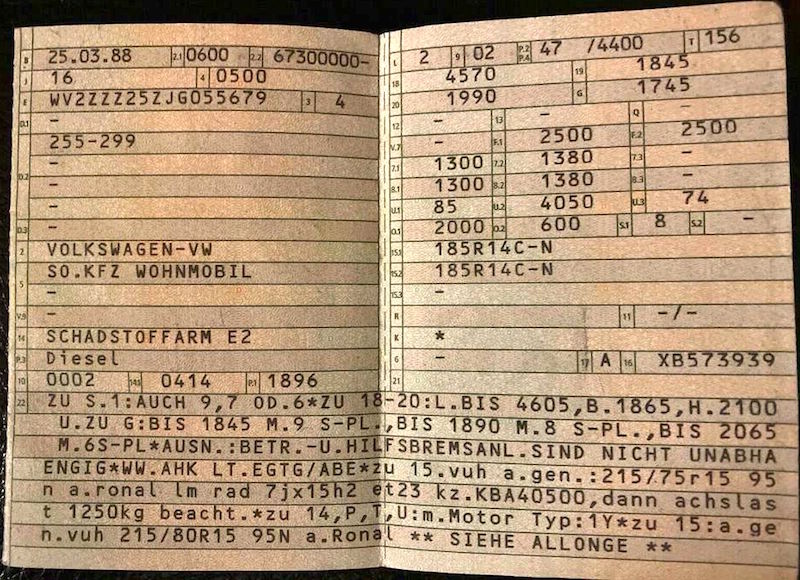 B 25.03.88 2.1 0600 2.2 67300000-
J 16 4 0500
E WV2ZZZ25ZJG055679 3 4
D.1 -
255-299
D.2 -
-
-
D.3 -
2 VOLKSWAGEN-VW
5 SO.KFZ WOHNMOBIL
-
V.9 -
14 SCHADSTOFFARM E2
P.3 Diesel
10 0002 14.1 0414 P.1 1896
L 2 9 02 P.2 P.4 47 /4400 T 156
18 4570 19 1845
20 1990 G 1745
12 - 13 - Q -
V.7 - F.1 2500 F.2 2500
7.1 1300 7.2 1380 7.3 -
8.1 1300 8.2 1380 8.3 -
U.1 85 U.2 4050 U.3 74
O.1 2000 O.2 600 S.1 8 S.2 -
15.1 185R14C-N
15.2 185R14C-N
15.3 -
R 11 -/-
K *
6 - 17 A 16 XB573939
21
22 ZU S.1:AUCH 9,7 OD.6*ZU 18-20:L.BIS 4605,B.1865,H.2100
U.ZU G:BIS 1845 M.9 S-PL.,BIS 1890 M.8 S-PL.,BIS 2065
M.6S-PL*AUSN.:BETR.-U.HILFSBREMSANL.SIND NICHT UNABHA
ENGIG*WW.AHK LT.EGTG/ABE*zu 15.vuh a.gen.:215/75r15 95
n a.ronal lm rad 7jx15h2 et23 kz.KBA40500,dann achslas
t 1250kg beacht.*zu 14,P,T,U:m.Motor Typ:1Y*zu 15:a.ge
n.vuh 215/80R15 95N a.Ronal ** SIEHE ALLONGE **